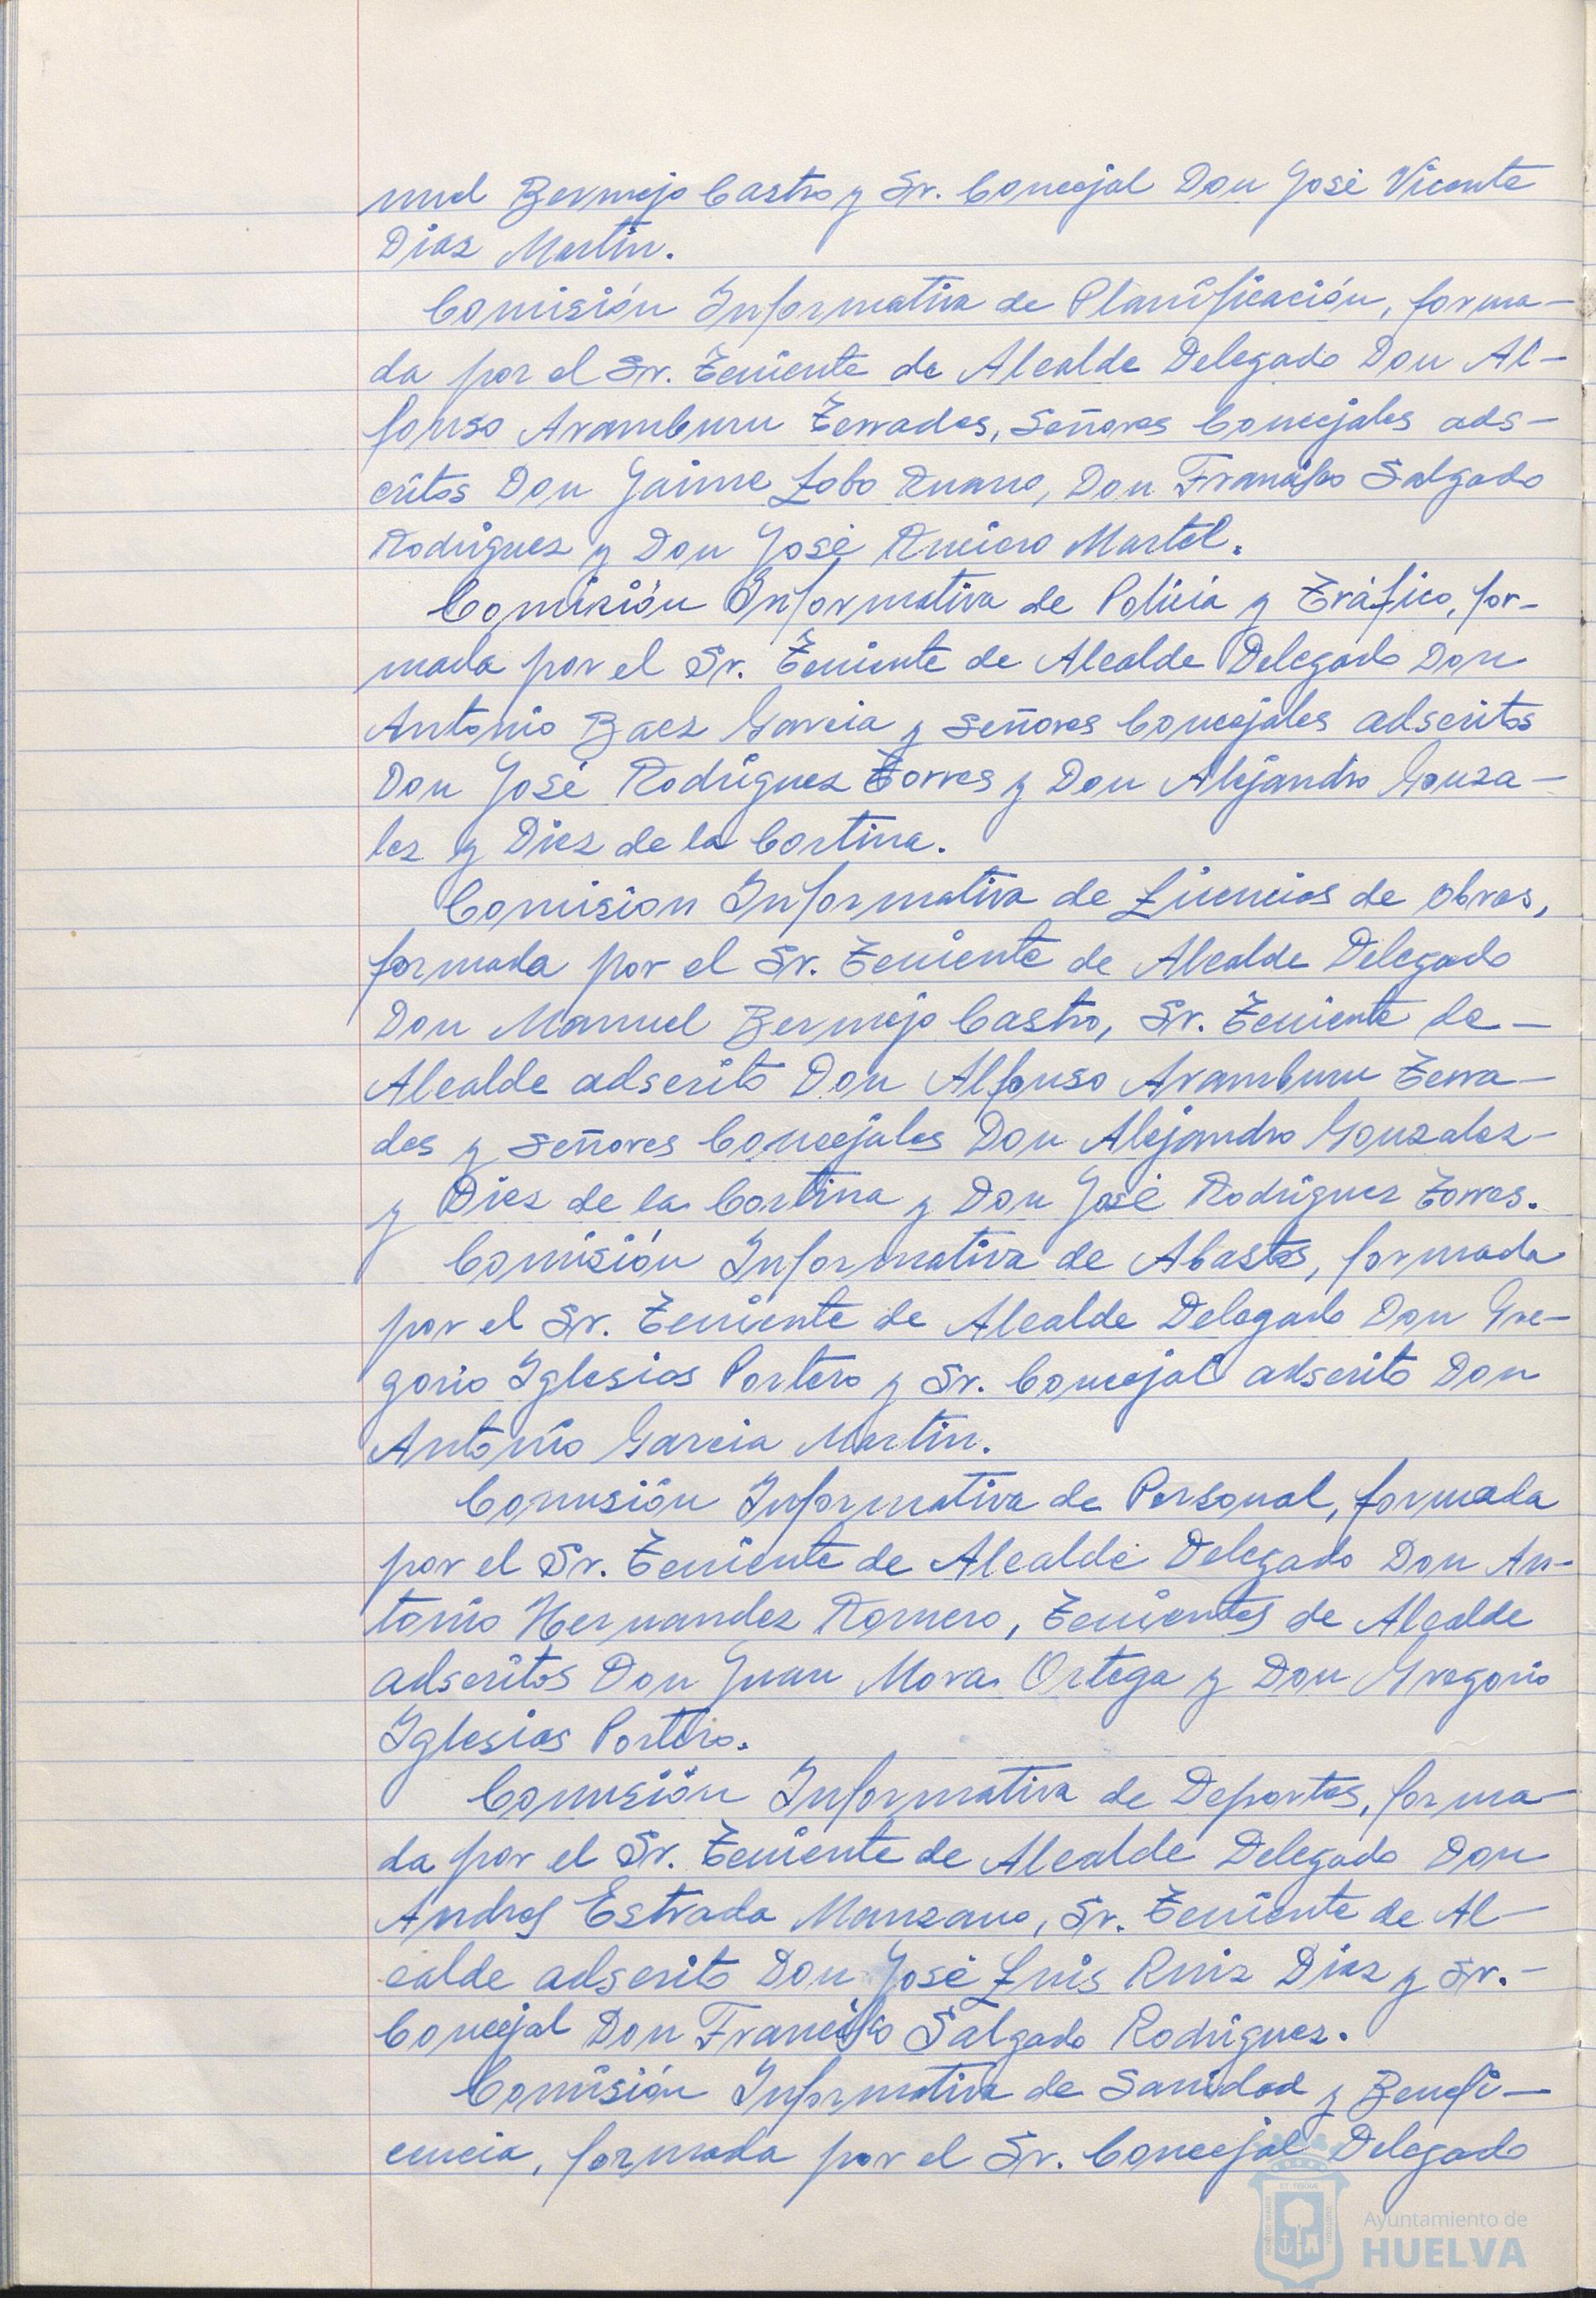 nuel Bermejo Castro y Sr. Concejal Don José Vicente
Diaz Martin.
Comisión Informativa de Planificación, forma-
da por el Sr. Teniente de Alcalde Delegado Don Al-
fonso Aramburu Terrades, Señores Concejales ads-
critos Don Jaime Lobo Ruano, Don Francisco Salgado
Rodriguez y Don José Runcioro Martel.
Comisión Informativa de Policía y Tráfico, for-
mada por el Sr. Teniente de Alcalde Delegado Don
Antonio Baez Garcia y Señores Concejales adscritos
Don José Rodriguez Torres y Don Alejandro Gonza-
lez y Diez de la Cortina.
Comision Informativa de Licencias de Obras,
formada por el Sr. Teniente de Alcalde Delegado
Don Manuel Bermejo Castro, Sr. Teniente de-
Alcalde adscrito Don Alfonso Aramburu Terra-
des y Señores Concejales Don Alejandro Gonzalez-
y Diez de la Cortina y Don José Rodriguez Torres.
Comisión Informativa de Abastos, formada
por el Sr. Teniente de Alcalde Delegado Don Gre-
gorio Iglesias Portero y Sr. Concejal adscrito Don
Antonio Garcia Martin.
Comisión Informativa de Personal, formada
por el Sr. Teniente de Alcalde Delegado Don An-
tonio Hernandez Romero, Tenientes de Alcalde
adscritos Don Juan Mora Ortega y Don Gregorio
Iglesias Portero.
Comisión Informativa de Deportes, forma-
da por el Sr. Teniente de Alcalde Delegado Don
Andres Estrada Manzano, Sr. Teniente de Al-
calde adscrito Don José Luis Ruiz Diaz y Sr.-
Concejal Don Francisco Salgado Rodriguez.
Comisión Informativa de Sanidad y Benefi-
cencia, formada por el Sr. Concejal Delegado
Ayuntamiento de
HUELVA